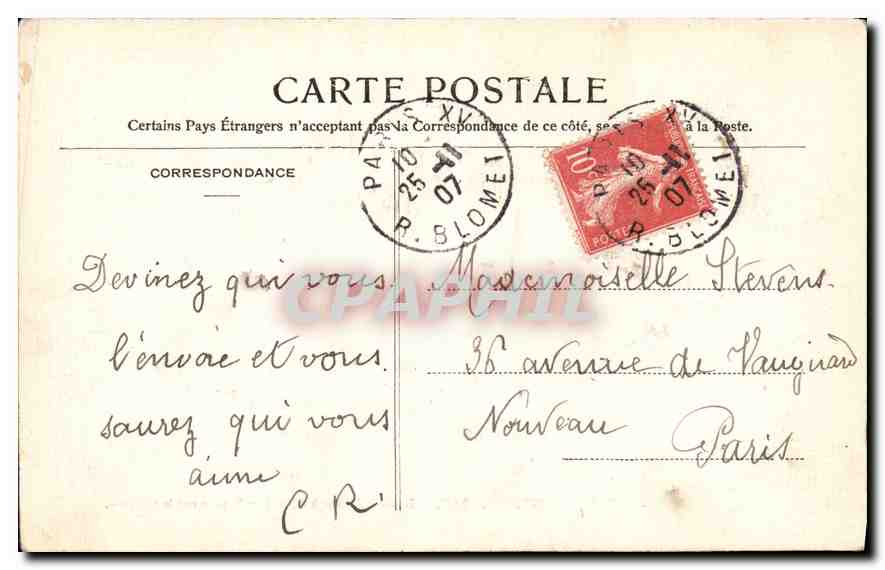 CARTE POSTALE
Certains Pays Étrangers n'acceptant pas la Correspondance de ce côté, se à la Poste.
CORRESPONDANCE
PARIS XV
10 11
25 07
R. BLOMET
PARIS XV
10 11
25 07
R. BLOMET
10
POSTES
Devinez qui vous
l'envoie et vous
saurez qui vous
aime
C R.
Mademoiselle Stevens
36 avenue de Vaugirard
Nouveau
Paris
CPAPHIL